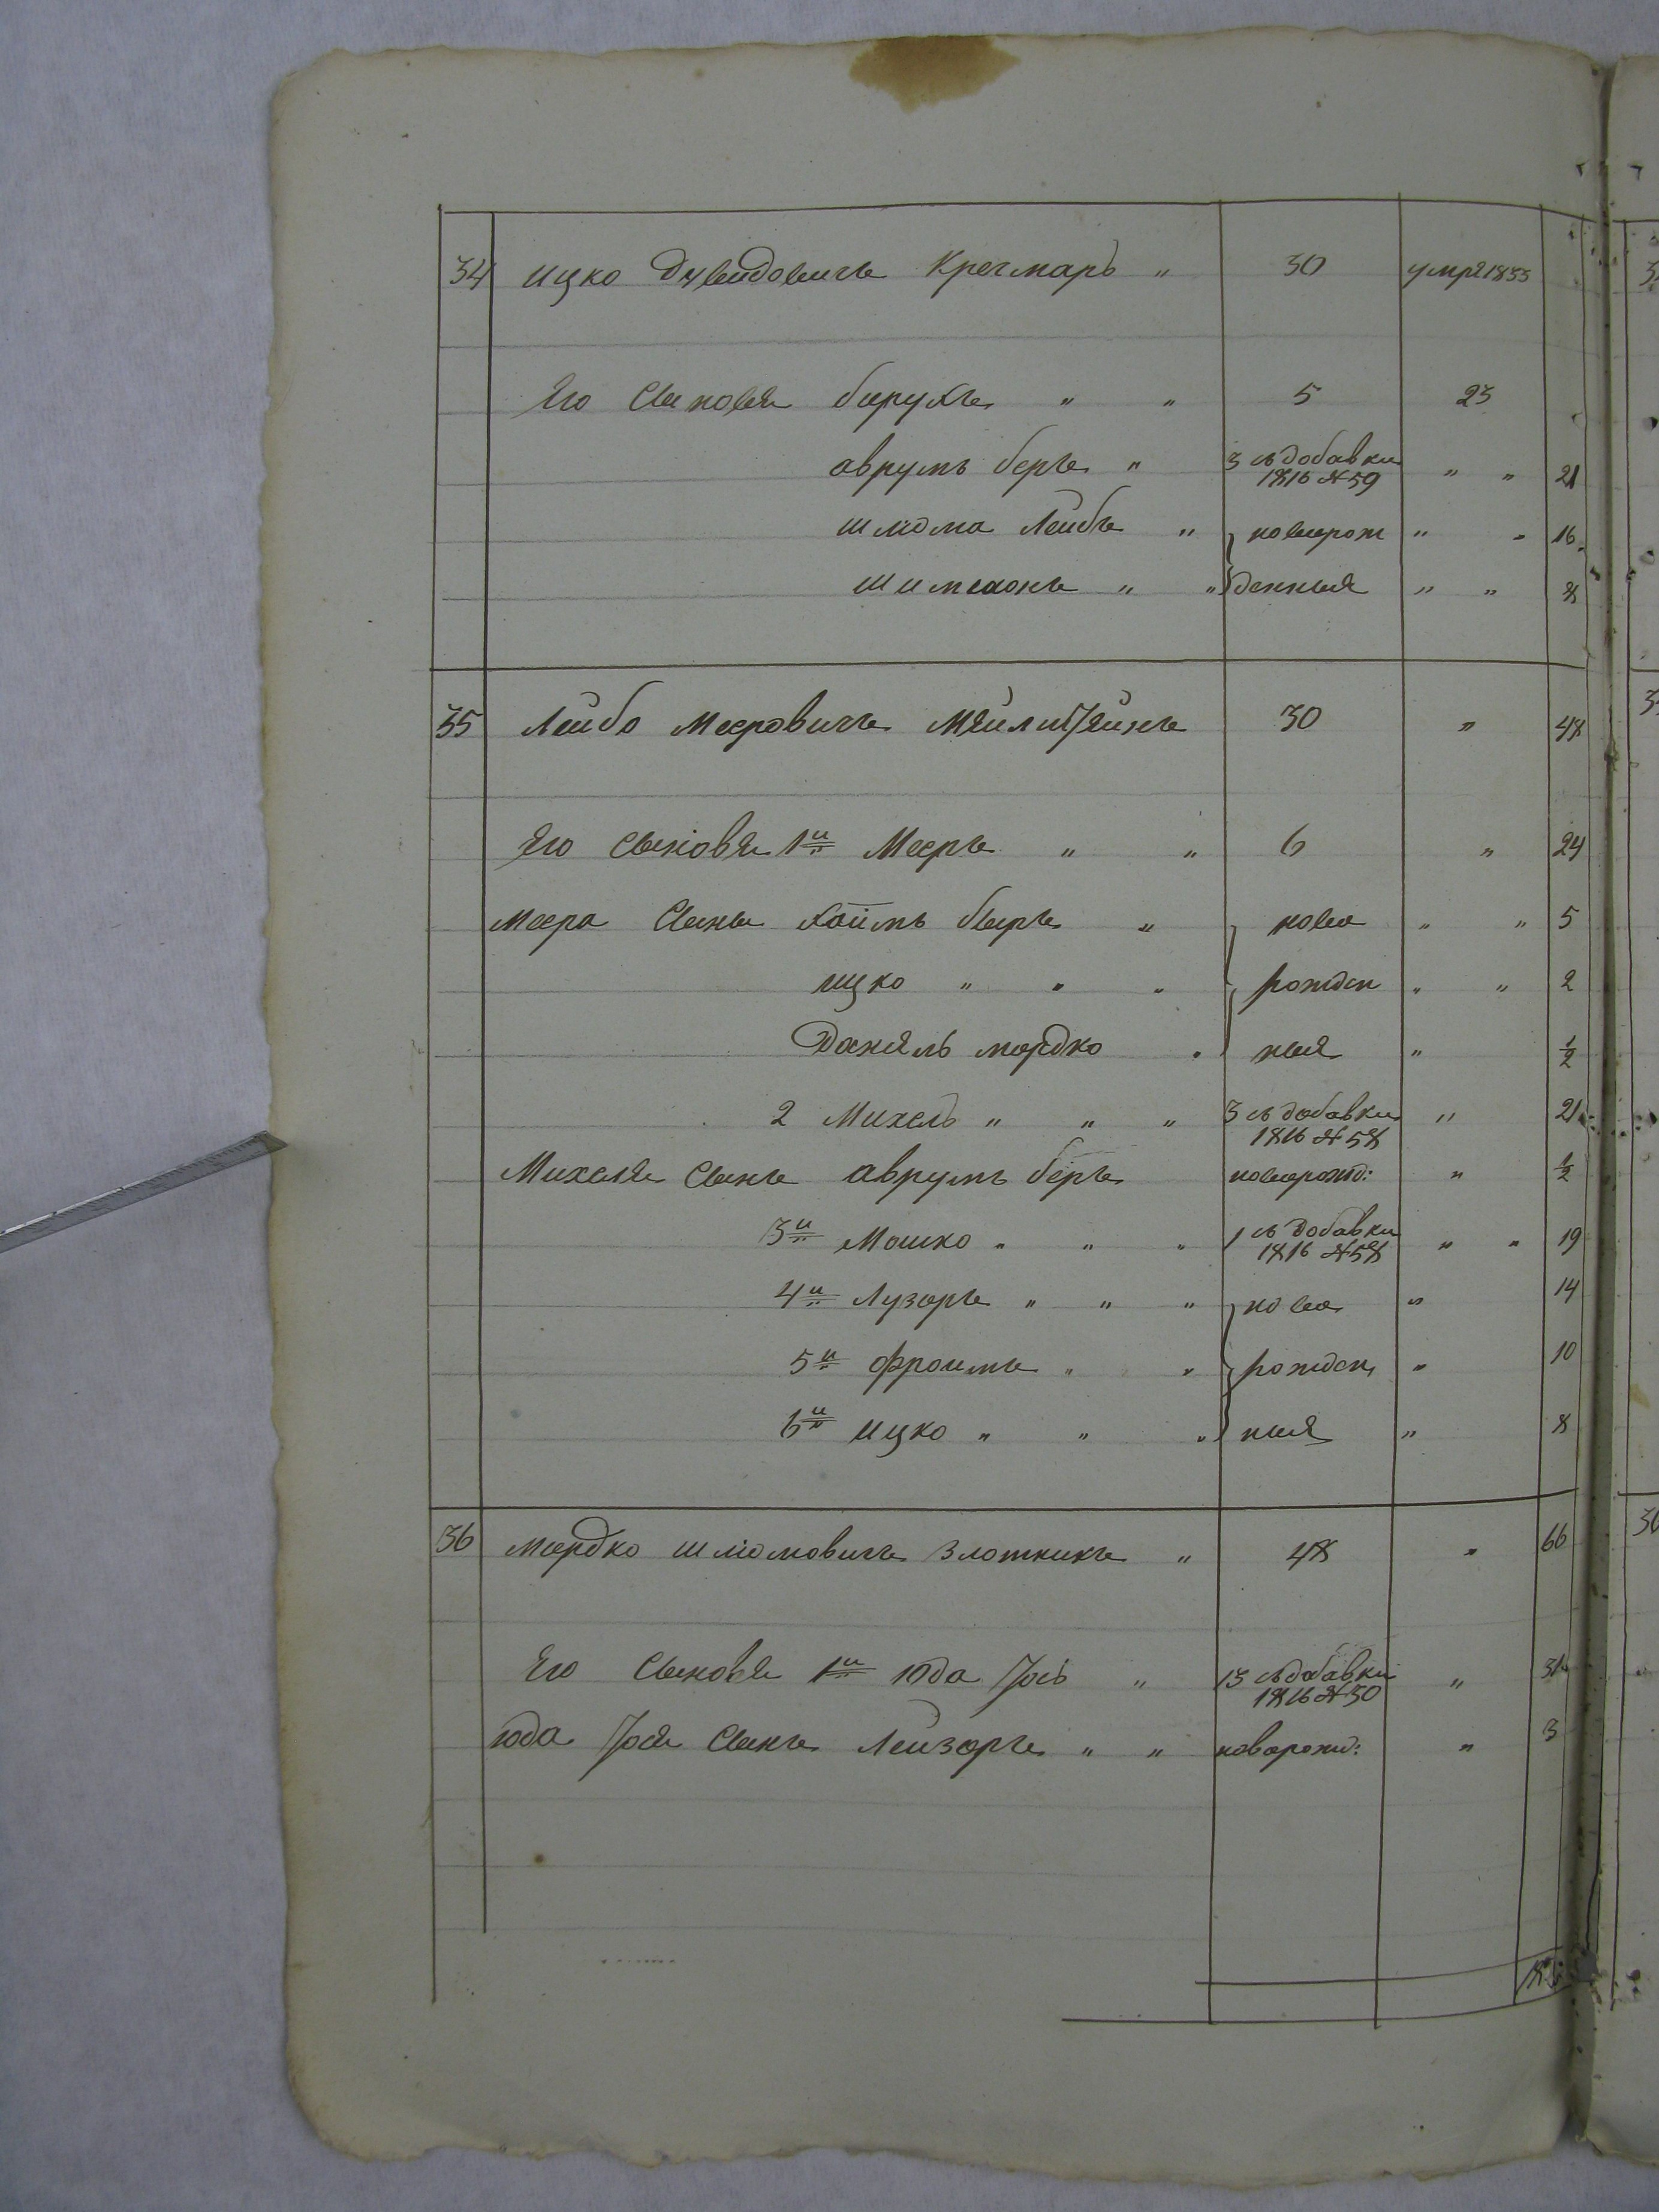 34 Ицко Дувидовичъ Кречмаръ " 30 умре 1833
Его Сыновья борухъ " " 5 23
аврумъ беръ " 3 съ добавки 1816 №59 " " 21
шлiома Лейбъ " новорож " " 16
шимшонъ " " денныя " " 8
35 Лейбо Мееровичъ 30 " 48
Его Сыновья 1й Мееръ " " 6 " 24
Меера Сыны хаимъ беръ " ново " " 5
ицко " " " рожден " " 2
Даниль мордко " ныя " ½
2 Михель " " " 3 съ добавки 1816 №58 " 21
Михеля Сынъ аврумъ беръ новорожд: " ½
3й Мошко " " " 1 съ добавки 1816 №58 " " 19
4й Лузоръ " " " ново " 14
5й Фроимъ " " рожден " 10
6й Ицко " " " ныя " 8
36 Мордко шлiомовичъ Злотникъ " 48 " 66
Его Сыновья 1й юда Iось " 13 съ добавки 1816 №50 " 31
юда Iося Сынъ Лейзоръ " " новорожд: " 3